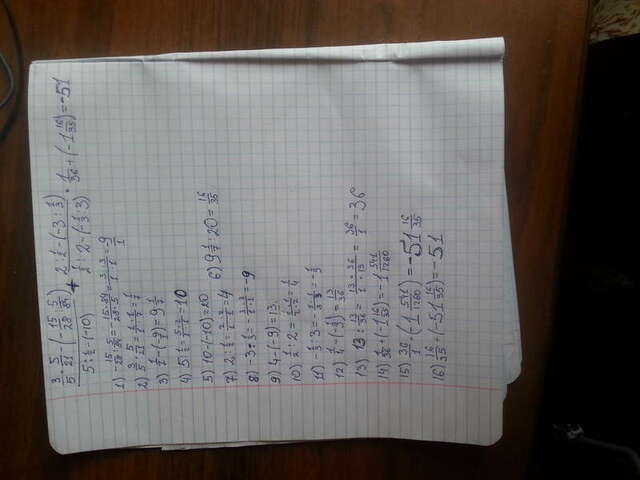 3/5 · 5/21 - (-15/28 : 5/84) + 2 : 1/2 - (-3 : 1/3) · 1/36 + (-1 16/35) = -51
5 : 1/2 - (-10) 1/2 : 2 - (-1/3 : 3)
1) -15/28 : 5/84 = -15·84/28·5 = 3·3/1·1 = -9/1
2) 3/5 · 5/21 = 1·1/1·7 = 1/7
3) 1/7 - (-9/1) = 9 1/7
4) 5 : 1/2 = 5·2/1·1 = 10
5) 10 - (-10) = 20
6) 9 1/7 : 20 = 16/35
7) 2 : 1/2 = 2·2/1·1 = 4
8) -3 : 1/3 = -3·3/1·1 = -9
9) 4 - (-9) = 13
10) 1/2 : 2 = 1·1/2·2 = 1/4
11) -1/3 : 3 = -1·1/3·3 = -1/9
12) 1/4 - (-1/9) = 13/36
13) 13 : 13/36 = 13·36/1·13 = 36/1 = 36
14) 1/36 + (-1 16/35) = -1 541/1260
15) 36/1 · (-1 541/1260) = -51 16/35
16) 16/35 + (-51 16/35) = -51